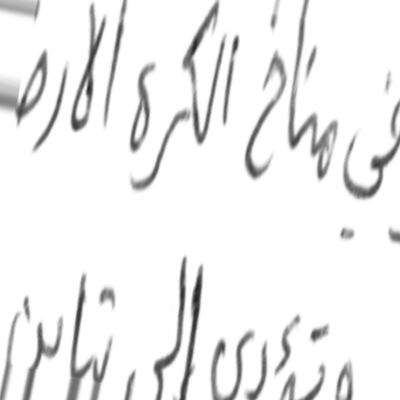 في مناخ الكرة الارض
وتؤدي إلى تباين